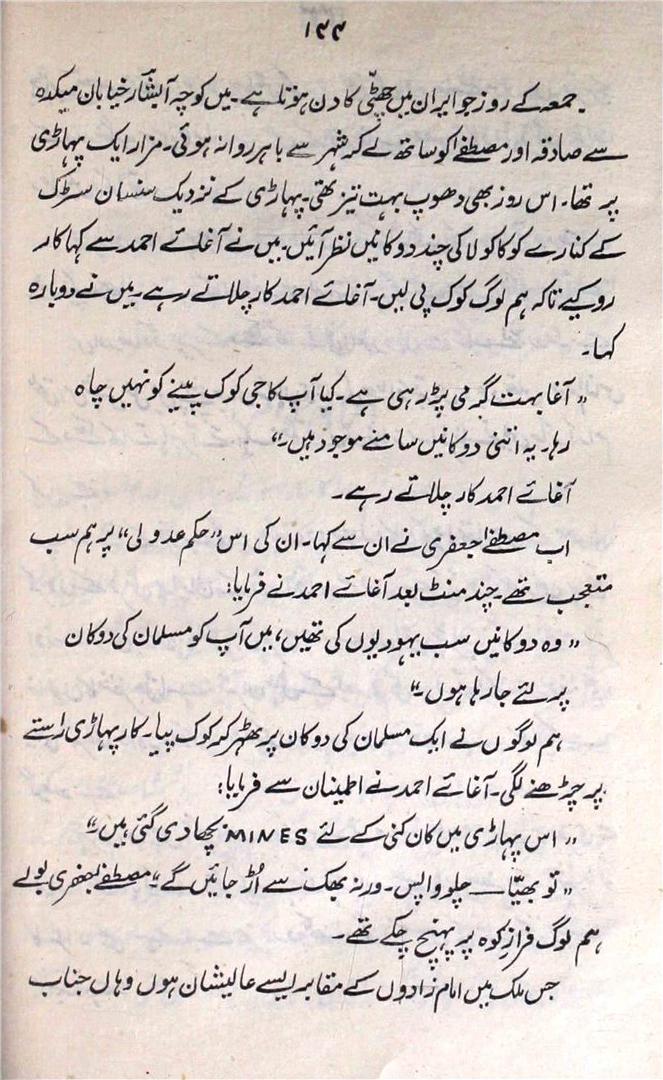 ۱۴۴
جمعہ کے روز جو ایران میں چھٹی کا دن ہوتا ہے۔ میں کوچہ آبشار خیابان میکدہ
سے صادقہ اور مصطفےٰ کو ساتھ لے کر شہر سے باہر روانہ ہوئی۔ مزار ایک پہاڑی
پر تھا۔ اس روز بھی دھوپ بہت تیز تھی۔ پہاڑی کے نزدیک سنسان سڑک
کے کنارے کوکا کولا کی چند دوکانیں نظر آئیں۔ میں نے آغائے احمد سے کہا کار
روکیے تاکہ ہم لوگ کوک پی لیں۔ آغائے احمد کار چلاتے رہے۔ میں نے دوبارہ
کہا۔
”آغا بہت گرمی پڑ رہی ہے۔ کیا آپ کا جی کوک پینے کو نہیں چاہ
رہا۔ یہ اتنی دوکانیں سامنے موجود ہیں۔“
آغائے احمد کار چلاتے رہے۔
اب مصطفےٰ جعفری نے ان سے کہا۔ ان کی اس ”حکم عدولی“ پر ہم سب
متعجب تھے۔ چند منٹ بعد آغائے احمد نے فرمایا:
”وہ دوکانیں سب یہودیوں کی تھیں، میں آپ کو مسلمان کی دوکان
پر لئے جا رہا ہوں۔“
ہم لوگوں نے ایک مسلمان کی دوکان پر ٹھہر کر کوک پیا۔ کار پہاڑی راستے
پر چڑھنے لگی۔ آغائے احمد نے اطمینان سے فرمایا:
”اس پہاڑی میں کان کنی کے لئے MINES بچھا دی گئی ہیں۔“
”تو بھیّا — چلو واپس۔ ورنہ بھک سے اُڑ جائیں گے“، مصطفےٰ جعفری بولے
ہم لوگ فرازِ کوہ پر پہنچ چکے تھے۔
جس ملک میں امام زادوں کے مقابر ایسے عالیشان ہوں وہاں جناب